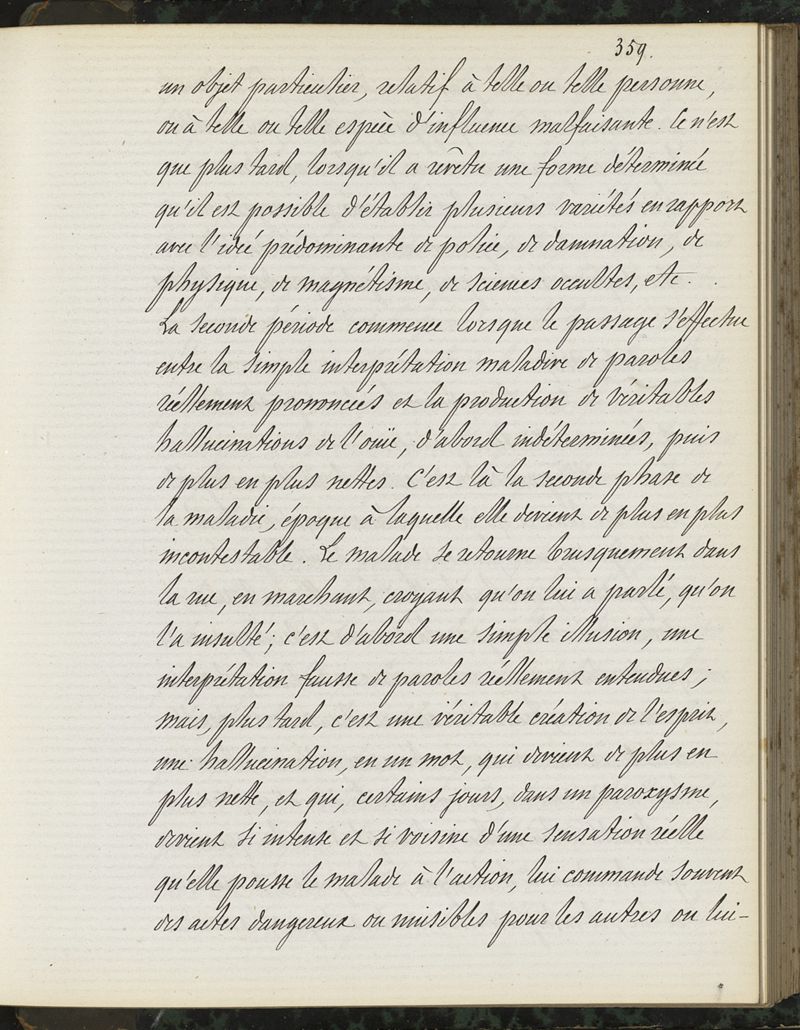 359.
un objet particulier, relatif à telle ou telle personne,
ou à telle ou telle espèce d'influence malfaisante. Ce n'est
que plus tard, lorsqu'il a revêtu une forme déterminée
qu'il est possible d'établir plusieurs variétés en rapport
avec l'idée prédominante de police, de damnation, de
physique, de magnétisme, de sciences occultes, etc.
La seconde période commence lorsque le passage s'effectue
entre la simple interprétation maladive de paroles
réellement prononcées et la production de véritables
hallucinations de l'ouïe, d'abord indéterminées, puis
de plus en plus nettes. C'est là la seconde phase de
la maladie, époque à laquelle elle devient de plus en plus
incontestable. Le malade se retourne brusquement dans
la rue, en marchant, croyant qu'on lui a parlé, qu'on
l'a insulté; c'est d'abord une simple illusion, une
interprétation fausse de paroles réellement entendues;
mais, plus tard, c'est une véritable création de l'esprit,
une hallucination, en un mot, qui devient de plus en
plus nette, et qui, certains jours, dans un paroxysme,
devient si intense et si voisine d'une sensation réelle
qu'elle pousse le malade à l'action, lui commande souvent
des actes dangereux ou nuisibles pour les autres ou lui-